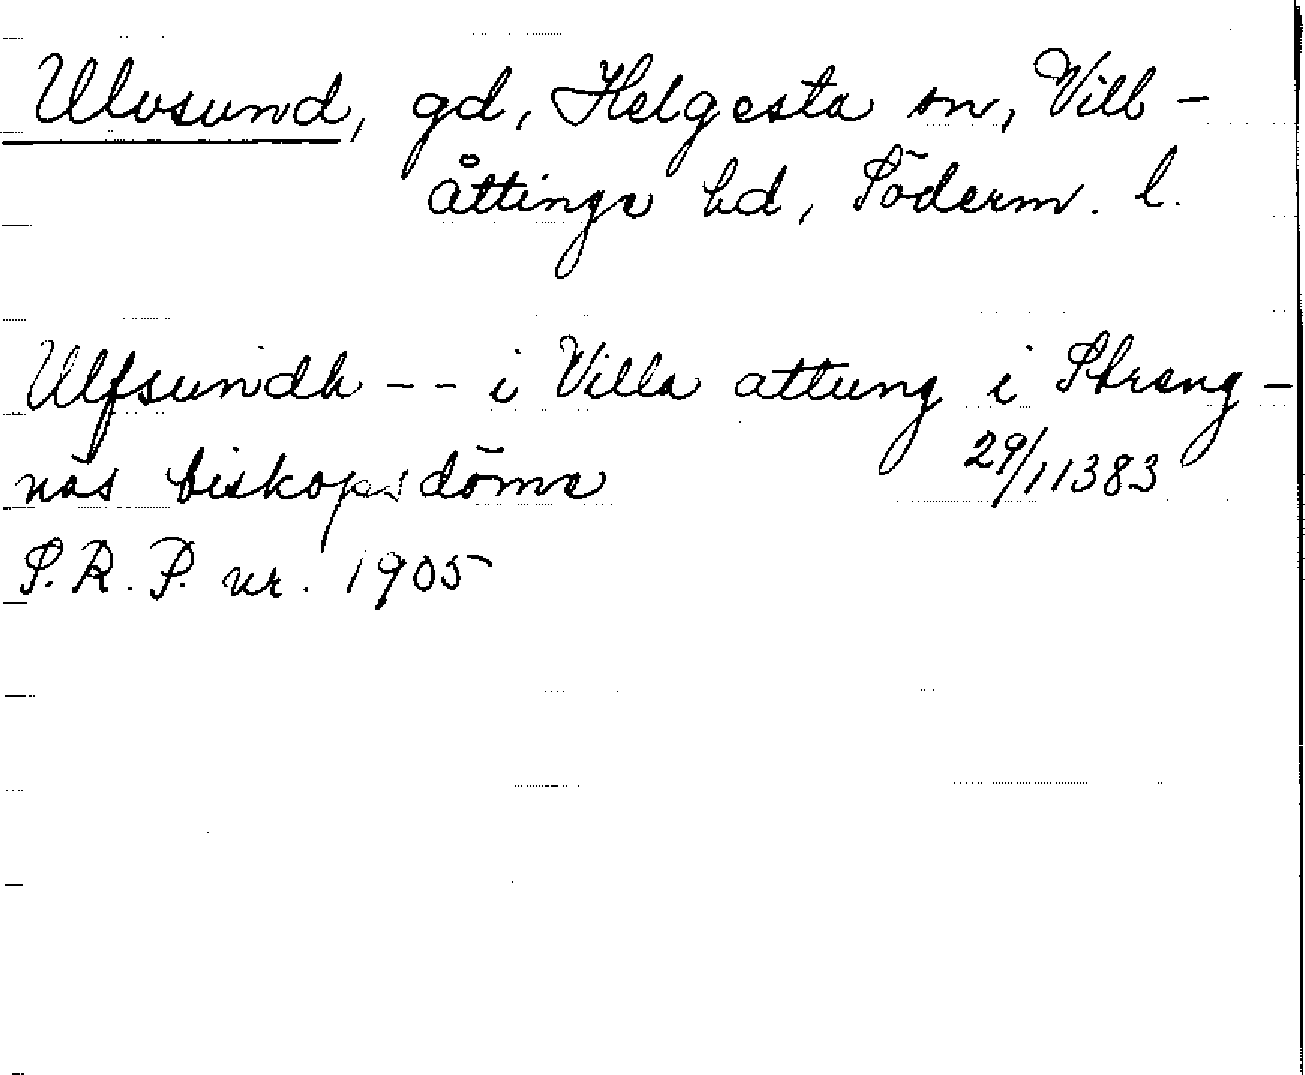 Ulvsund, gd, Helgesta sn, Vill-
åttinge hd, Söderm. l.
Ulfsundh -- i Villa attung i Streng-
näs biskopsdöme 29/1 1383
S.R.P. nr. 1905